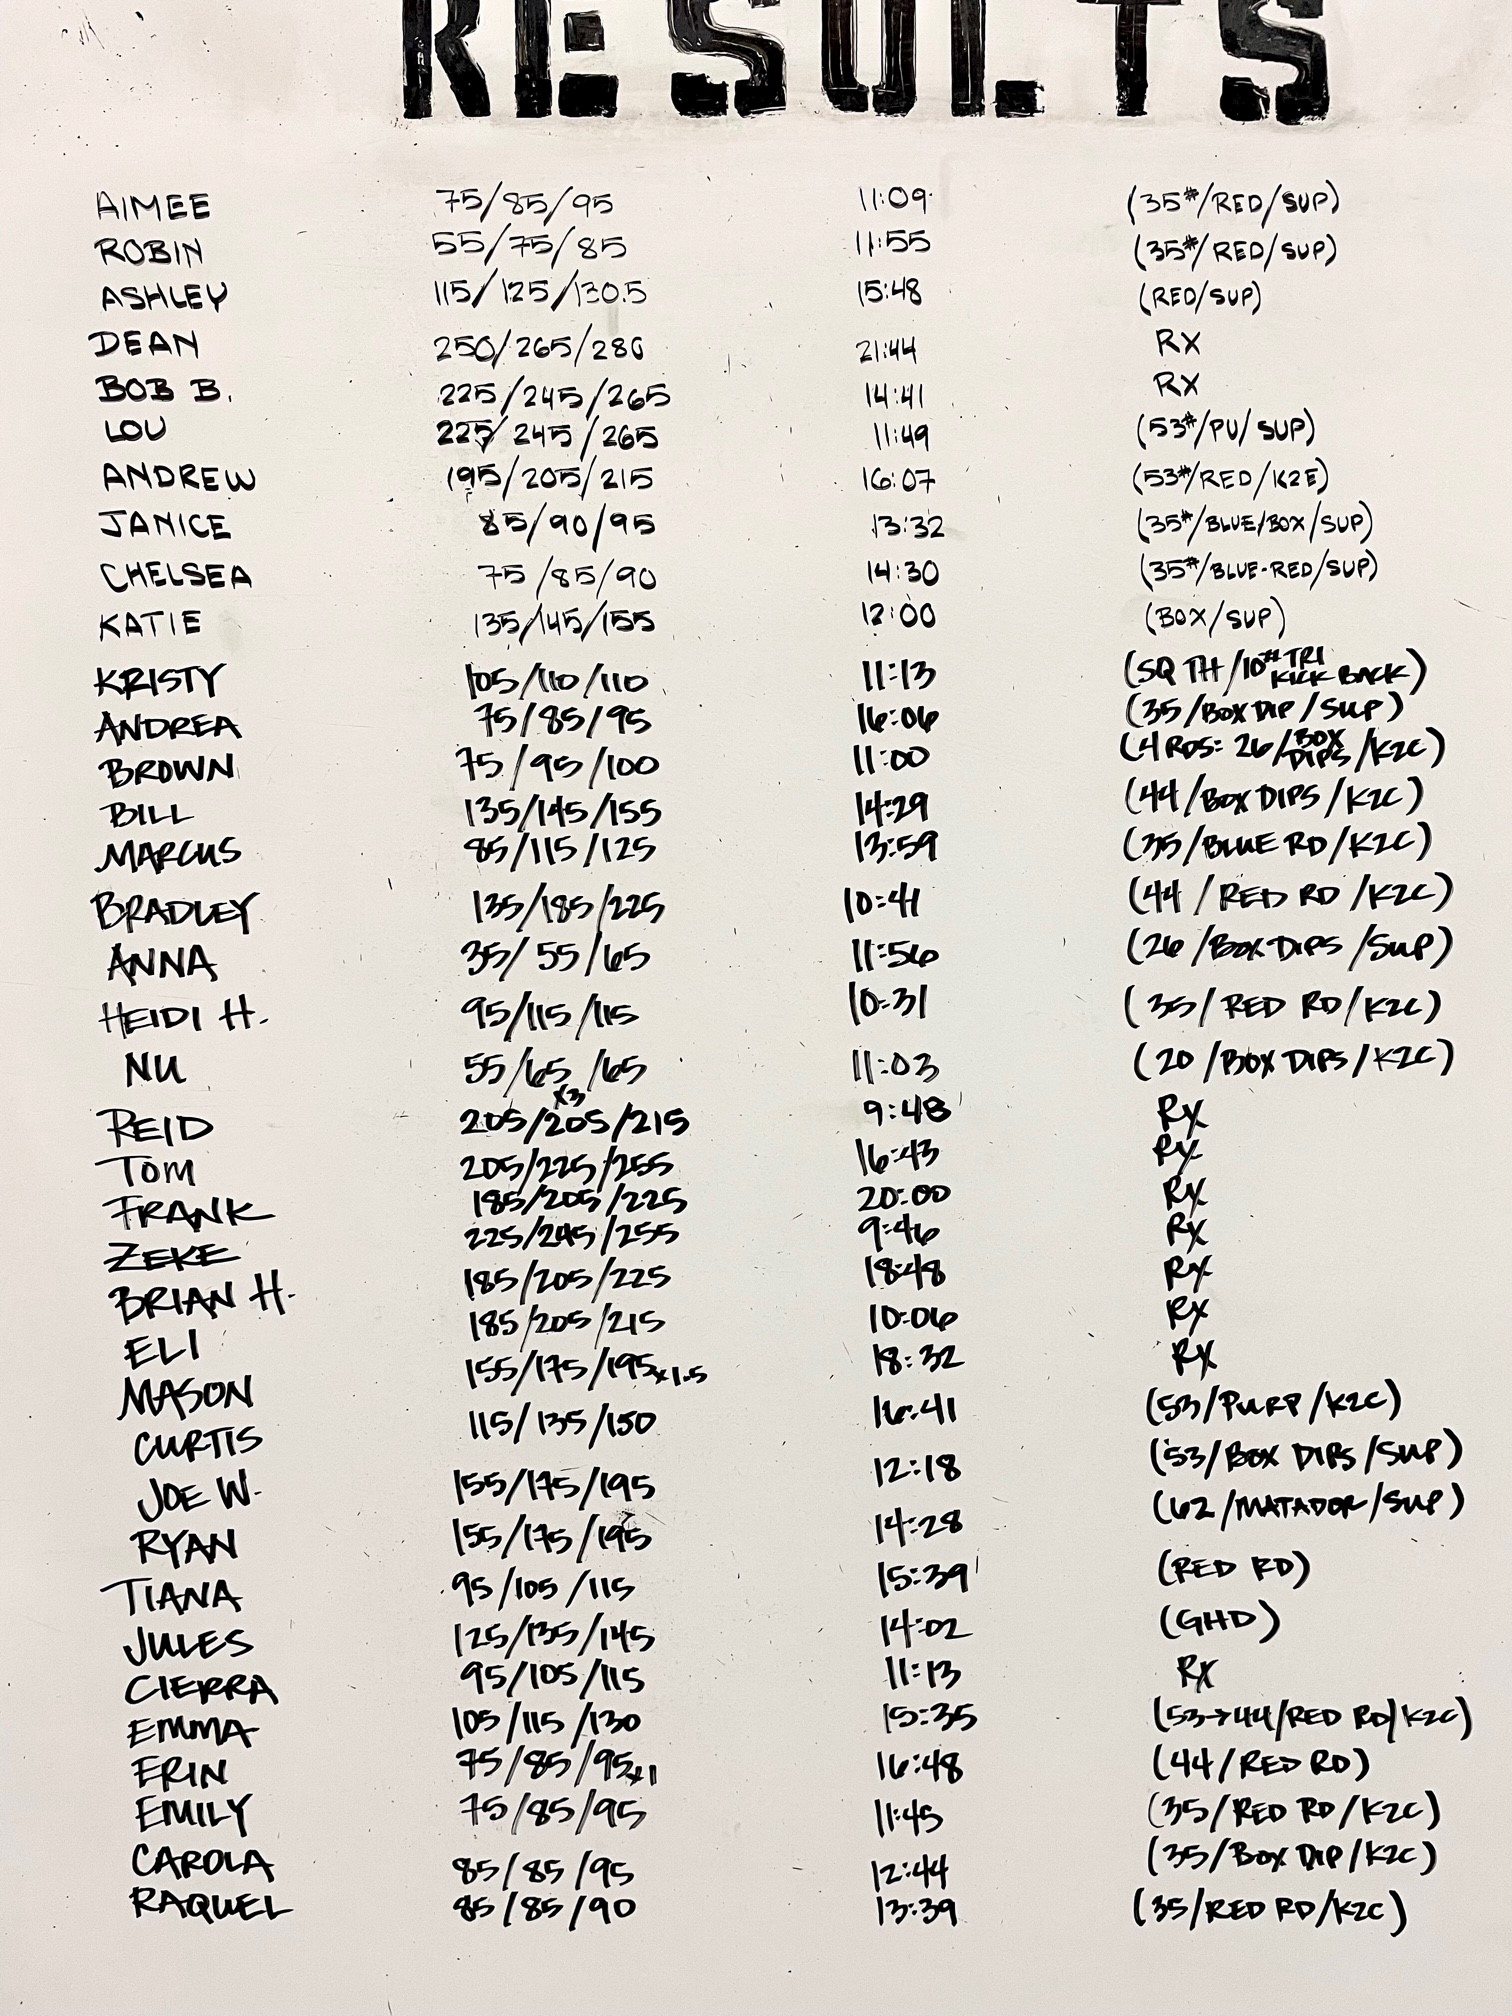 RESULTS
AIMEE 75/85/95 11:09 (35#/RED/SUP)
ROBIN 55/75/85 11:55 (35#/RED/SUP)
ASHLEY 115/125/130.5 15:48 (RED/SUP)
DEAN 250/265/280 21:44 RX
BOB B. 225/245/265 14:41 RX
LOU 225/245/265 11:49 (53#/PU/SUP)
ANDREW 195/205/215 16:07 (53#/RED/K2E)
JANICE 85/90/95 13:32 (35#/BLUE/BOX/SUP)
CHELSEA 75/85/90 14:30 (35#/BLUE-RED/SUP)
KATIE 135/145/155 12:00 (BOX/SUP)
KRISTY 105/110/110 11:13 (SQ TH/10# TRI KICK BACK)
ANDREA 75/85/95 16:06 (35/BOX DIP/SUP)
BROWN 75/95/100 11:00 (4 RDS: 26/BOX DIPS/K2C)
BILL 135/145/155 14:29 (44/BOX DIPS/K2C)
MARCUS 85/115/125 13:59 (35/BLUE RD/K2C)
BRADLEY 135/185/225 10:41 (44/RED RD/K2C)
ANNA 35/55/65 11:56 (26/BOX DIPS/SUP)
HEIDI H. 95/115/115 10:31 (35/RED RD/K2C)
NU 55/65/65 11:03 (20/BOX DIPS/K2C)
x3
REID 205/205/215 9:48 RX
TOM 205/225/255 16:43 RX
FRANK 185/205/225 20:00 RX
ZEKE 225/245/255 9:46 RX
BRIAN H. 185/205/225 18:48 RX
ELI 185/205/215 10:06 RX
MASON 155/175/195x1.5 18:32 RX
CURTIS 115/135/150 16:41 (53/PURP/K2C)
JOE W. 155/175/195 12:18 (53/BOX DIPS/SUP)
RYAN 155/175/195 14:28 (62/MATADOR/SUP)
TIANA 95/105/115 15:39 (RED RD)
JULES 125/135/145 14:02 (GHD)
CIERRA 95/105/115 11:13 RX
EMMA 105/115/130 15:35 (53→44/RED RD/K2C)
ERIN 75/85/95x1 16:48 (44/RED RD)
EMILY 75/85/95 11:45 (35/RED RD/K2C)
CAROLA 85/85/95 12:44 (35/BOX DIP/K2C)
RAQUEL 85/85/90 13:39 (35/RED RD/K2C)